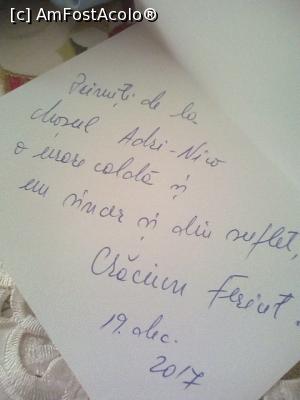 [c] AmFostAcolo®
Primiți de la
chosul Adri-Nico
o urare caldă și
un sincer și din suflet,
Crăciun Fericit.
19. dec.
2017